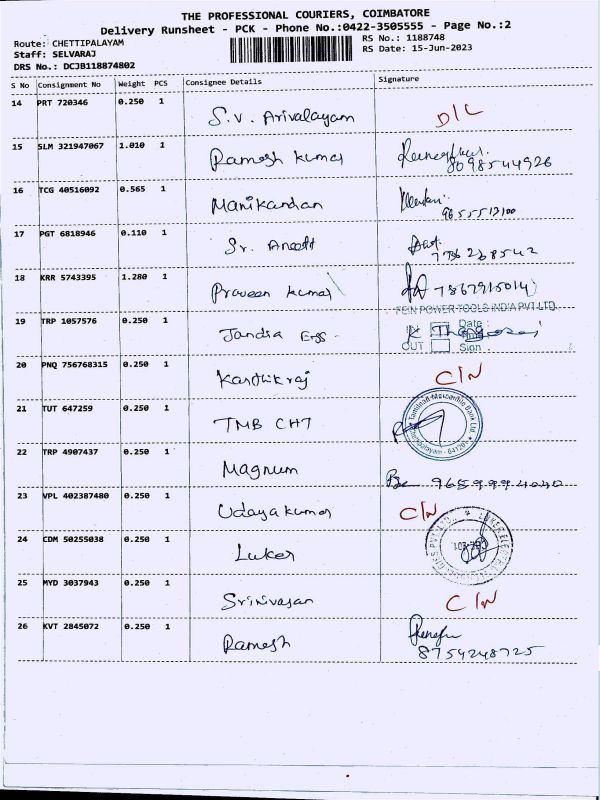 THE PROFESSIONAL COURIERS, COIMBATORE
Delivery Runsheet - PCK - Phone No.:0422-3505555 - Page No.:2
Route: CHETTIPALAYAM RS No.: 1188748
Staff: SELVARAJ RS Date: 15-Jun-2023
DRS No.: DCJB118874802
S No Consignment No Weight PCS Consignee Details Signature
14 PRT 720346 0.250 1 S.V. Arivalayam D/L
15 SLM 321947067 1.010 1 Ramesh Kumar 8098544926
16 TCG 40516092 0.565 1 Manikandan 9655512100
17 PGT 6818946 0.110 1 Sr. 7736268542
18 KRR 5743395 1.280 1 Praveen Kumar 7867915014
TEIN POWER TOOLS INDIA PVT.LTD.
19 TRP 1057576 0.250 1 Jandia Engg. Date
OUT Sign
20 PNQ 756768315 0.250 1 Karthik raj C/N
21 TUT 647259 0.250 1 TMB CHT Tamilnad Mercantile Bank Ltd.
22 TRP 4907437 0.250 1 Magnum 9659994040
23 VPL 402387480 0.250 1 Udaya kumar C/N
24 CDM 50255038 0.250 1 Luker
25 MYD 3037943 0.250 1 Srinivasan C/N
26 KVT 2845072 0.250 1 Ramesh 8754248725